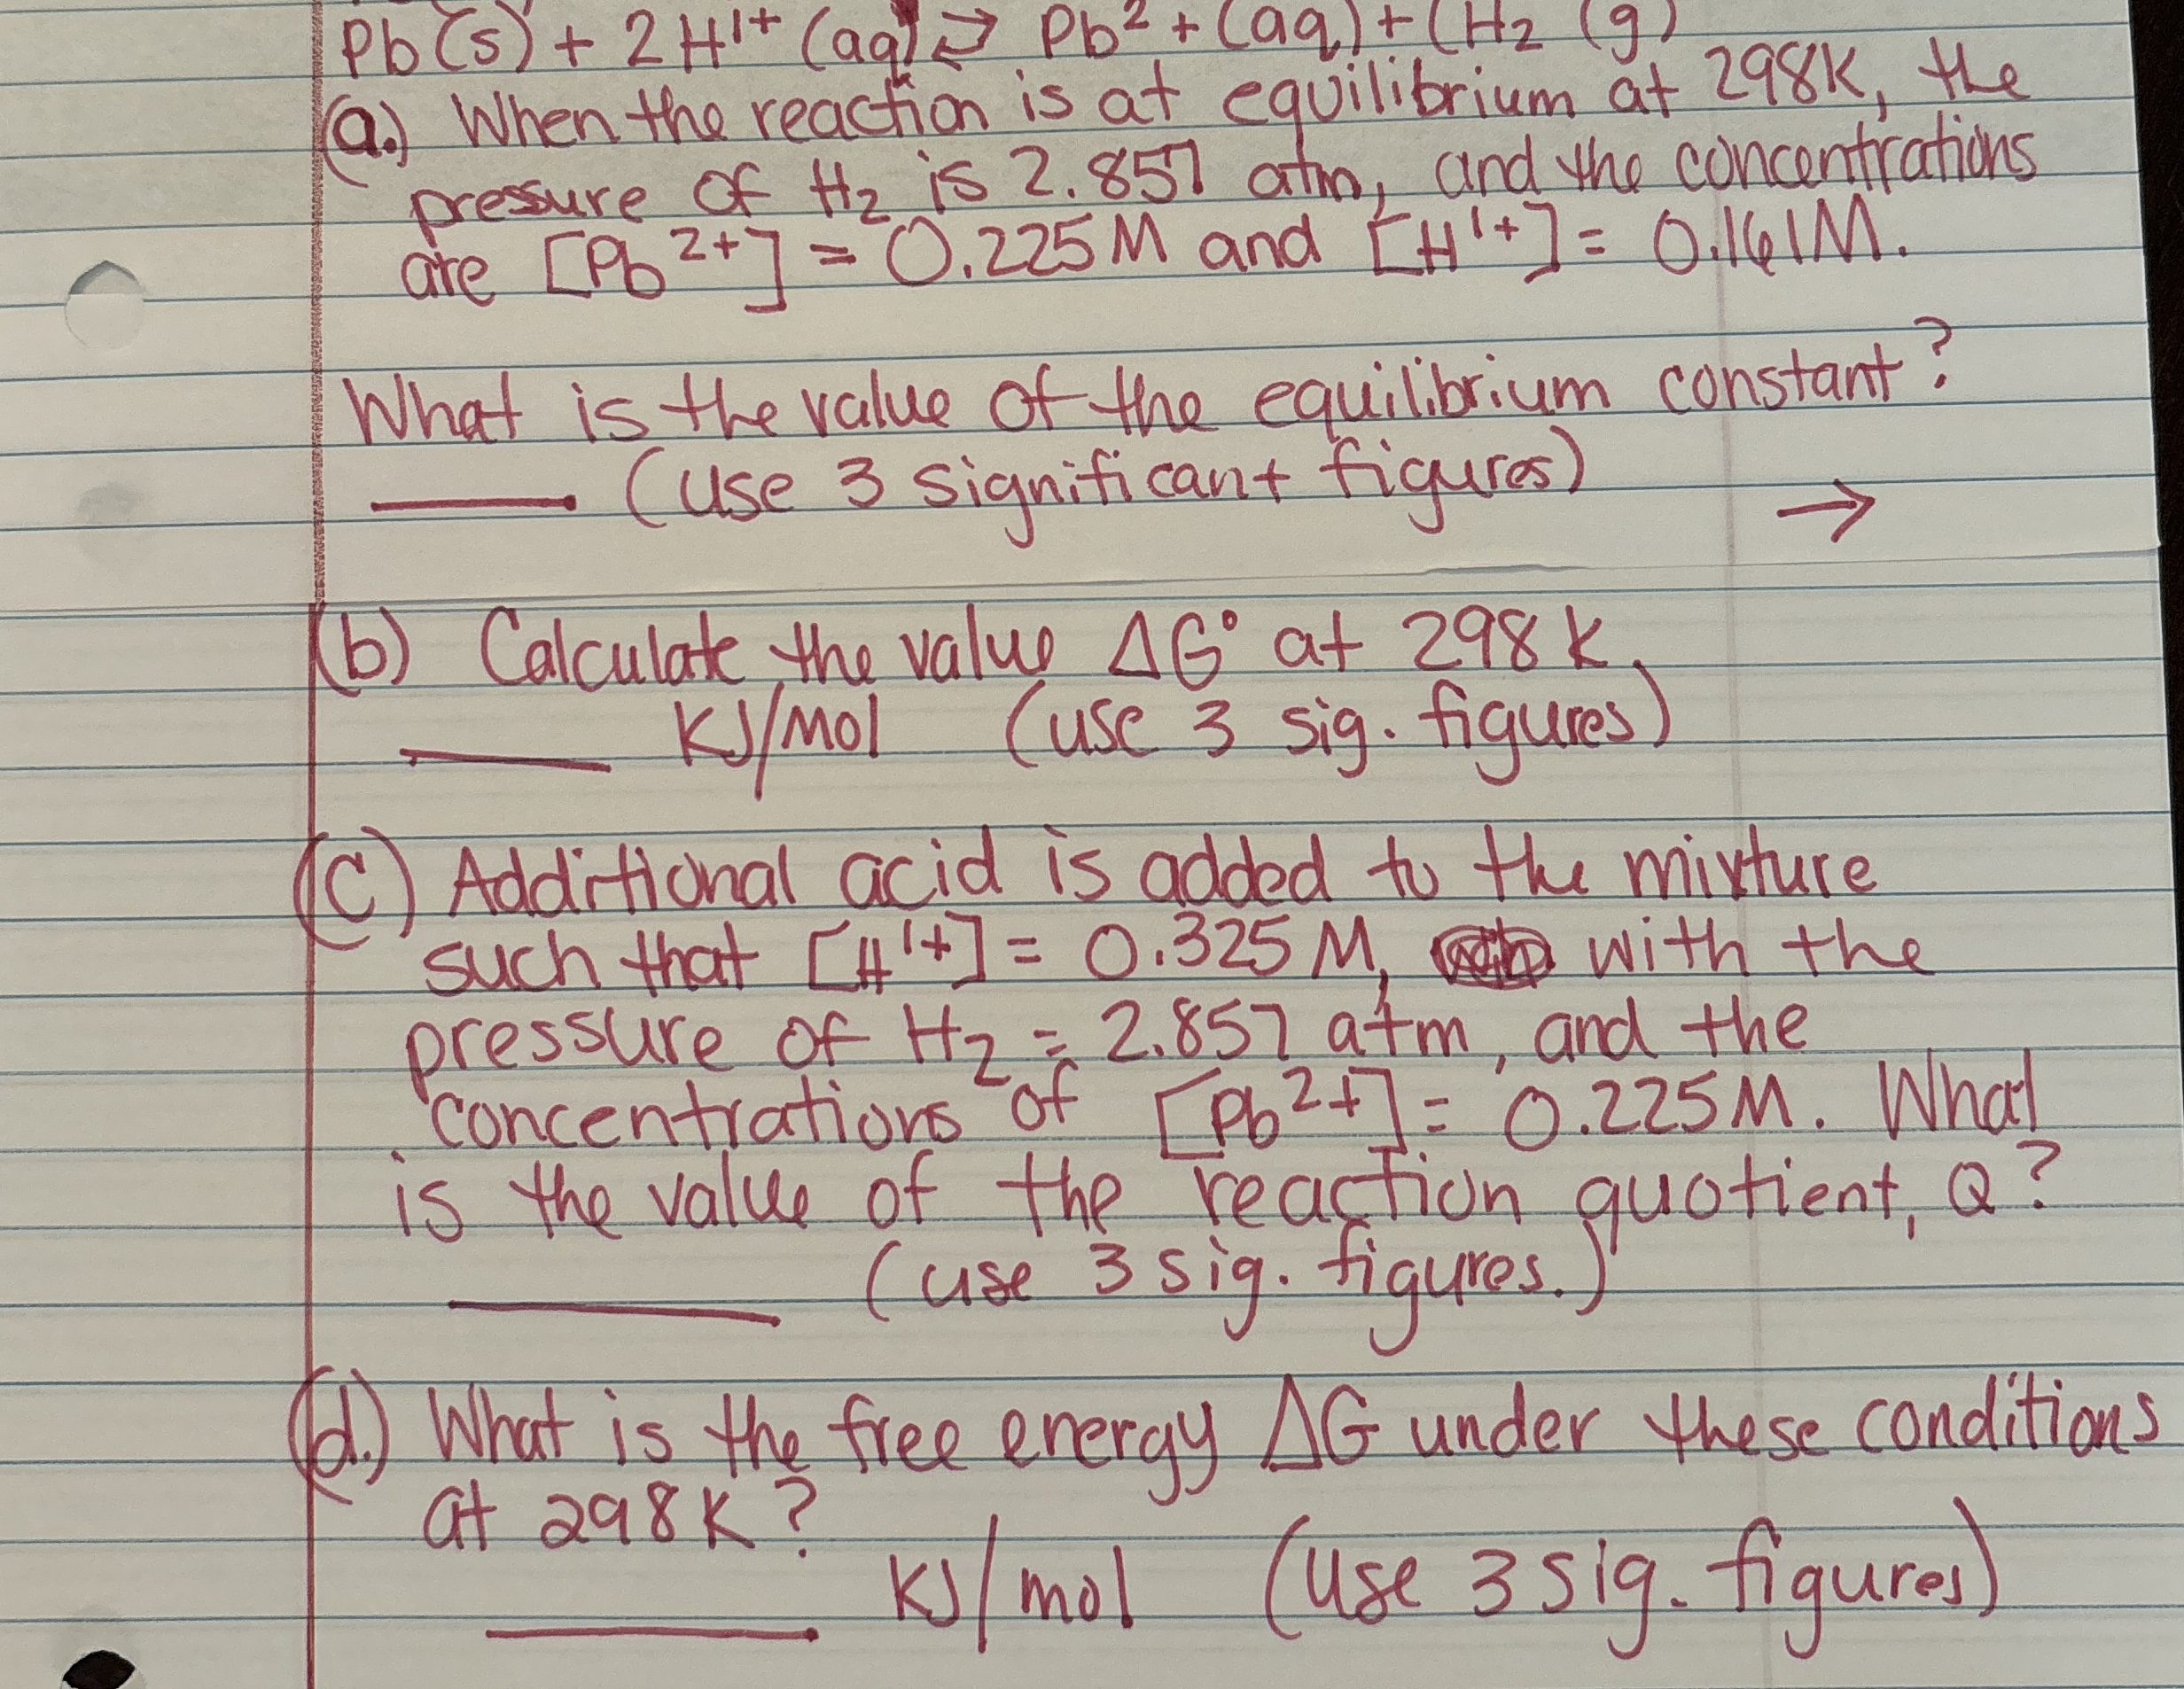 Pb(s) + 2H¹⁺ (aq) ⇄ Pb²+(aq)+(H₂ (g)
(a.) When the reaction is at equilibrium at 298K, the
pressure of H₂ is 2.857 atm, and the concentrations
are [Pb²⁺] = 0.225M and [H¹⁺] = 0.161M.
What is the value of the equilibrium constant?
____. (use 3 significant figures) →
(b) Calculate the value ΔG° at 298K.
____ KJ/mol (use 3 sig. figures)
(C) Additional acid is added to the mixture
such that [H¹⁺] = 0.325M, with the
pressure of H₂ = 2.857 atm, and the
concentrations of [Pb²⁺] = 0.225M. What
is the value of the reaction quotient, Q?
____ (use 3 sig. figures.)
(d.) What is the free energy ΔG under these conditions
at 298K?
____ KJ/mol (use 3 sig. figures)